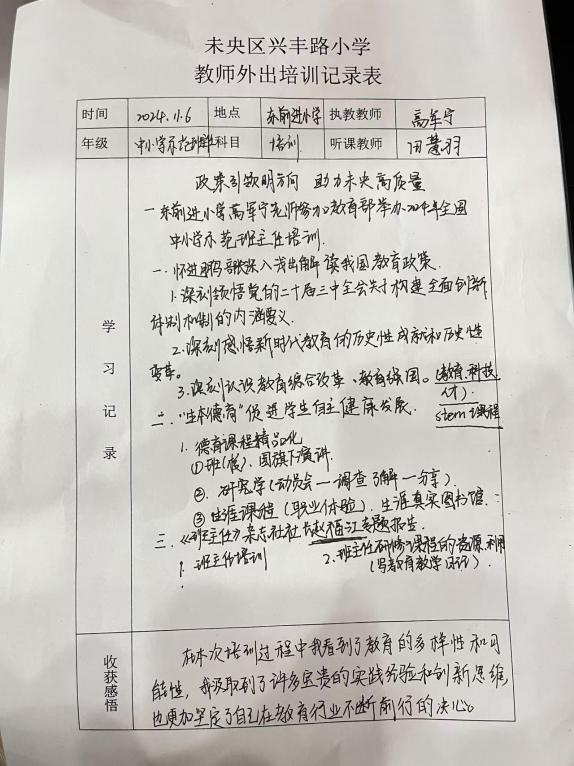 未央区兴丰路小学
教师外出培训记录表
时间 2024.11.6 地点 东前进小学 执教教师 高军宁
年级 中小学示范班主任 科目 培训 听课教师 田慧羽
学习记录
政策引领明方向 助力未央高质量
一东前进小学高军宁老师参加教育部举办2024年全国
中小学示范班主任培训.
一.怀进鹏部长深入浅出解读我国教育政策.
1.深刻领悟党的二十届三中全会关于构建全面创新
体制机制的内涵要义.
2.深刻感悟新时代教育的历史性成就和历史性
变革。
3.深刻认识教育综合改革、教育强国。(教育.科技.
人才).
二."生本德育"促进学生自主健康发展. stem课程
1.德育课程精品化
①班(队)、国旗下演讲.
②.研究学(动员会—调查了解—分享).
③生涯课程(职业体验).生涯真实图书馆.
三.《班主任》杂志社社长赵福江专题报告.
1.班主任培训 2.班主任研修课程的资源.利用
(写教育教学日记)
收获感悟
在本次培训过程中我看到了教育的多样性和可
能性,我汲取到了许多宝贵的实践经验和创新思维,
也更加坚定了自己在教育行业不断前行的决心。